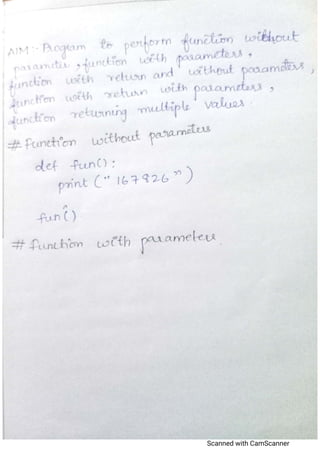 AIM:- Program to perform function without
parameter, function with parameters,
function with return and without parameters,
function with return with parameters,
function returning multiple values.
# Function without parameters
def fun():
print ("167826")
fun()
# function with parameters.
Scanned with CamScanner